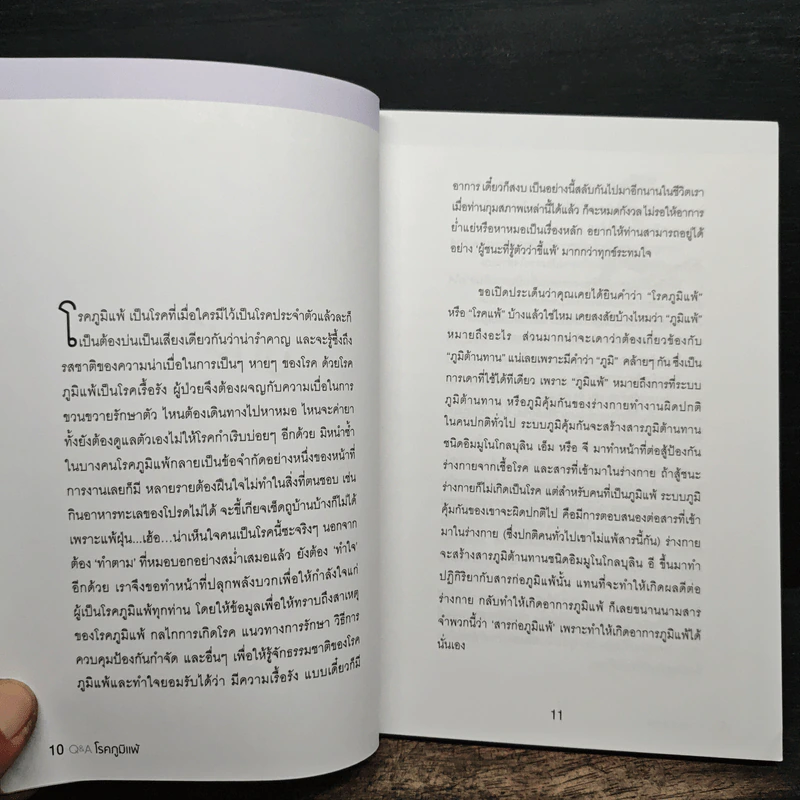 โรคภูมิแพ้ เป็นโรคที่เมื่อใครมีไว้เป็นโรคประจำตัวแล้วละก็
เป็นต้องบ่นเป็นเสียงเดียวกันว่าน่ารำคาญ และจะรู้ซึ้งถึง
รสชาติของความน่าเบื่อในการเป็นๆ หายๆ ของโรค ด้วยโรค
ภูมิแพ้เป็นโรคเรื้อรัง ผู้ป่วยจึงต้องผจญกับความเบื่อในการ
ขวนขวายรักษาตัว ไหนต้องเดินทางไปหาหมอ ไหนจะค่ายา
ทั้งยังต้องดูแลตัวเองไม่ให้โรคกำเริบบ่อยๆ อีกด้วย มิหนำซ้ำ
ในบางคนโรคภูมิแพ้กลายเป็นข้อจำกัดอย่างหนึ่งของหน้าที่
การงานเลยก็มี หลายรายต้องฝืนใจไม่ทำในสิ่งที่ตนชอบ เช่น
กินอาหารทะเลของโปรดไม่ได้ จะขี้เกียจเช็ดถูบ้านบ้างก็ไม่ได้
เพราะแพ้ฝุ่น...เฮ้อ...น่าเห็นใจคนเป็นโรคนี้ซะจริงๆ นอกจาก
ต้อง 'ทำตาม' ที่หมอบอกอย่างสม่ำเสมอแล้ว ยังต้อง 'ทำใจ'
อีกด้วย เราจึงขอทำหน้าที่ปลุกพลังบวกเพื่อให้กำลังใจแก่
ผู้เป็นโรคภูมิแพ้ทุกท่าน โดยให้ข้อมูลเพื่อให้ทราบถึงสาเหตุ
ของโรคภูมิแพ้ กลไกการเกิดโรค แนวทางการรักษา วิธีการ
ควบคุมป้องกันกำจัด และอื่นๆ เพื่อให้รู้จักธรรมชาติของโรค
ภูมิแพ้และทำใจยอมรับได้ว่า มีความเรื้อรัง แบบเดี๋ยวก็มี
10 Q&A โรคภูมิแพ้
อาการ เดี๋ยวก็สงบ เป็นอย่างนี้สลับกันไปมาอีกนานในชีวิตเรา
เมื่อท่านกุมสภาพเหล่านี้ได้แล้ว ก็จะหมดกังวล ไม่รอให้อาการ
ย่ำแย่หรือหาหมอเป็นเรื่องหลัก อยากให้ท่านสามารถอยู่ได้
อย่าง 'ผู้ชนะที่รู้ตัวว่าขี้แพ้' มากกว่าทุกข์ระทมใจ
ขอเปิดประเด็นว่าคุณเคยได้ยินคำว่า "โรคภูมิแพ้"
หรือ "โรคแพ้" บ้างแล้วใช่ไหม เคยสงสัยบ้างไหมว่า "ภูมิแพ้"
หมายถึงอะไร ส่วนมากน่าจะเดาว่าต้องเกี่ยวข้องกับ
"ภูมิต้านทาน" แน่เลยเพราะมีคำว่า "ภูมิ" คล้ายๆ กัน ซึ่งเป็น
การเดาที่ใช้ได้ทีเดียว เพราะ "ภูมิแพ้" หมายถึงการที่ระบบ
ภูมิต้านทาน หรือภูมิคุ้มกันของร่างกายทำงานผิดปกติ
ในคนปกติทั่วไป ระบบภูมิคุ้มกันจะสร้างสารภูมิต้านทาน
ชนิดอิมมูโนโกลบุลิน เอ็ม หรือ จี มาทำหน้าที่ต่อสู้ป้องกัน
ร่างกายจากเชื้อโรค และสารที่เข้ามาในร่างกาย ถ้าสู้ชนะ
ร่างกายก็ไม่เกิดเป็นโรค แต่สำหรับคนที่เป็นภูมิแพ้ ระบบภูมิ
คุ้มกันของเขาจะผิดปกติไป คือมีการตอบสนองต่อสารที่เข้า
มาในร่างกาย (ซึ่งปกติคนทั่วไปเขาไม่แพ้สารนี้กัน) ร่างกาย
จะสร้างสารภูมิต้านทานชนิดอิมมูโนโกลบุลิน อี ขึ้นมาทำ
ปฏิกิริยากับสารก่อภูมิแพ้นั้น แทนที่จะทำให้เกิดผลดีต่อ
ร่างกาย กลับทำให้เกิดอาการภูมิแพ้ ก็เลยขนานนามสาร
จำพวกนี้ว่า 'สารก่อภูมิแพ้' เพราะทำให้เกิดอาการภูมิแพ้ได้
นั่นเอง
11